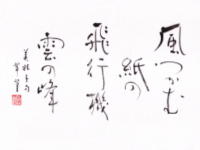 風つかむ
紙の
飛行機
雲の峰